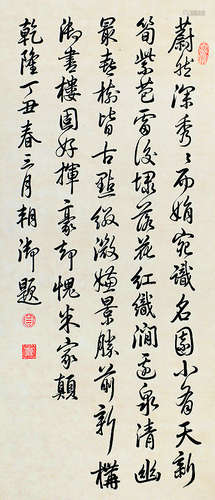 蔚然深秀々而娟宛識名園小有天新
筍紫苞雷後落花紅纈澗邊泉清幽
最喜樹皆古點綴微嫌景勝前新構
御書樓固好揮豪却愧米家顛
乾隆丁丑春三月朝御題